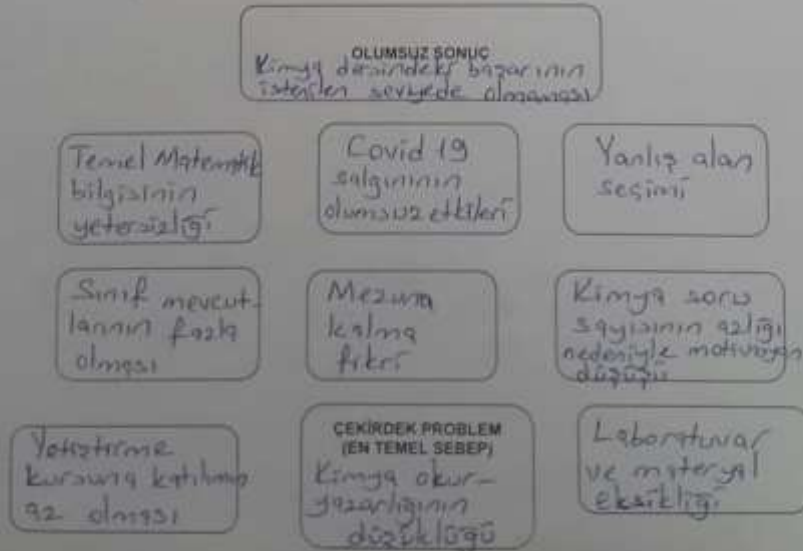 OLUMSUZ SONUÇ
Kimya dersindeki başarının
istenilen seviyede olmaması
Temel Matematik
bilgisinin
yetersizliği
Covid 19
salgınının
olumsuz etkileri
Yanlış alan
seçimi
Sınıf mevcut-
larının fazla
olması
Mezuna
kalma
fikri
Kimya soru
sayısının azlığı
nedeniyle motivasyon
düşüşü
Yetiştirme
kursuna katılımın
az olması
ÇEKİRDEK PROBLEM
(EN TEMEL SEBEP)
Kimya okur-
yazarlığının
düşüklüğü
Laboratuvar
ve materyal
eksikliği